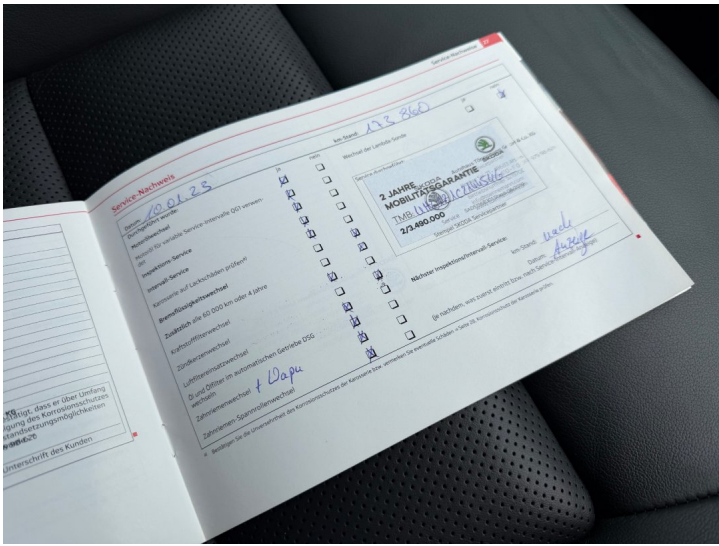 Service-Nachweis 27
Service-Nachweis
Datum: 10.01.23
km-Stand: 173 860
Durchgeführt wurde:
ja nein
ja nein
Motorölwechsel
Wechsel der Lambda-Sonde
Motoröl für variable Service-Intervalle QG1 verwendet
Inspektions-Service
Intervall-Service
Karosserie auf Lackschäden prüfen
Bremsflüssigkeitswechsel
Zusätzlich alle 60 000 km oder 4 Jahre
Kraftstofffilterwechsel
Zündkerzenwechsel
Luftfiltereinsatzwechsel
Öl und Ölfilter im automatischen Getriebe DSG
wechseln
Zahnriemenwechsel + Wapu
Zahnriemen-Spannrollenwechsel
SKODA
SKODA
2 JAHRE
MOBILITÄTSGARANTIE
TMB
2/3.490.000
Service
Stempel SKODA Servicepartner
Nächster Inspektions/Intervall-Service:
km-Stand: nach
Datum: Anzeige
(je nachdem, was zuerst eintritt bzw. nach Service-Intervall-Anzeige)
Bestätigen Sie die Unversehrtheit des Korrosionsschutzes der Karosserie bzw. vermerken Sie eventuelle Schäden
KG
bestätigt, dass er über Umfang
igung des Korrosionsschutzes
standsetzungsmöglichkeiten
Unterschrift des Kunden